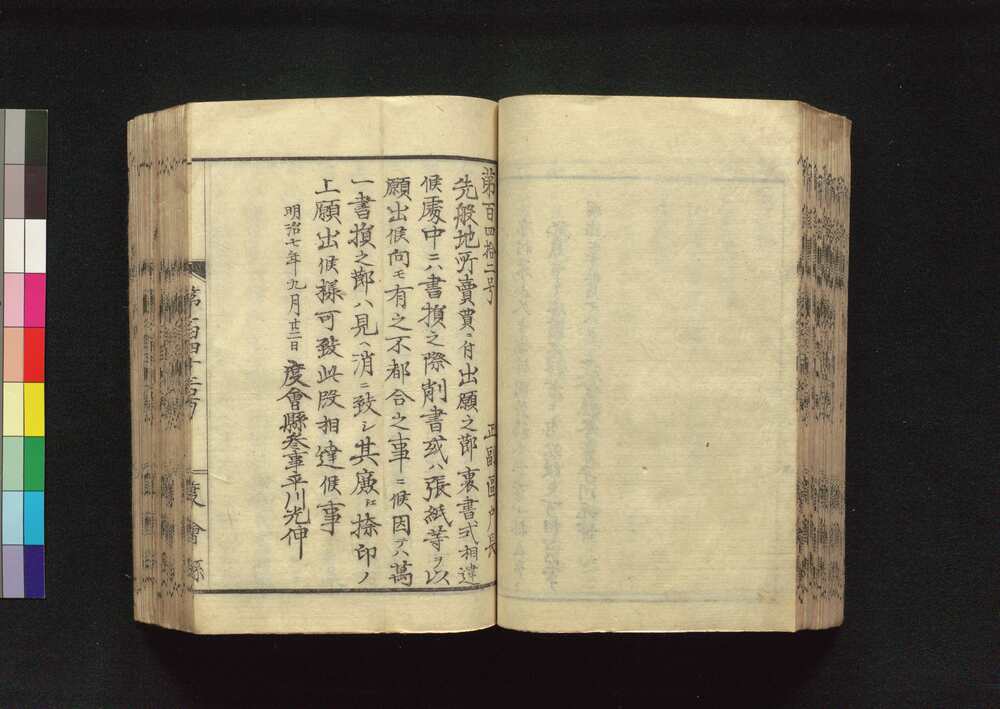 第百四拾二号 正副區戸長
先般地所賣買ニ付出願之節裏書式相違
候處中ニハ書損之際削書或ハ張紙等ヲ以
願出候向モ有之不都合之事ニ候因テハ萬
一書損之節ハ見ヘ消ニ致シ其廉江捺印ノ
上願出候樣可致此段相達候事
明治七年九月廿二日 度會縣参事平川光伸
第百四十二号 度會縣